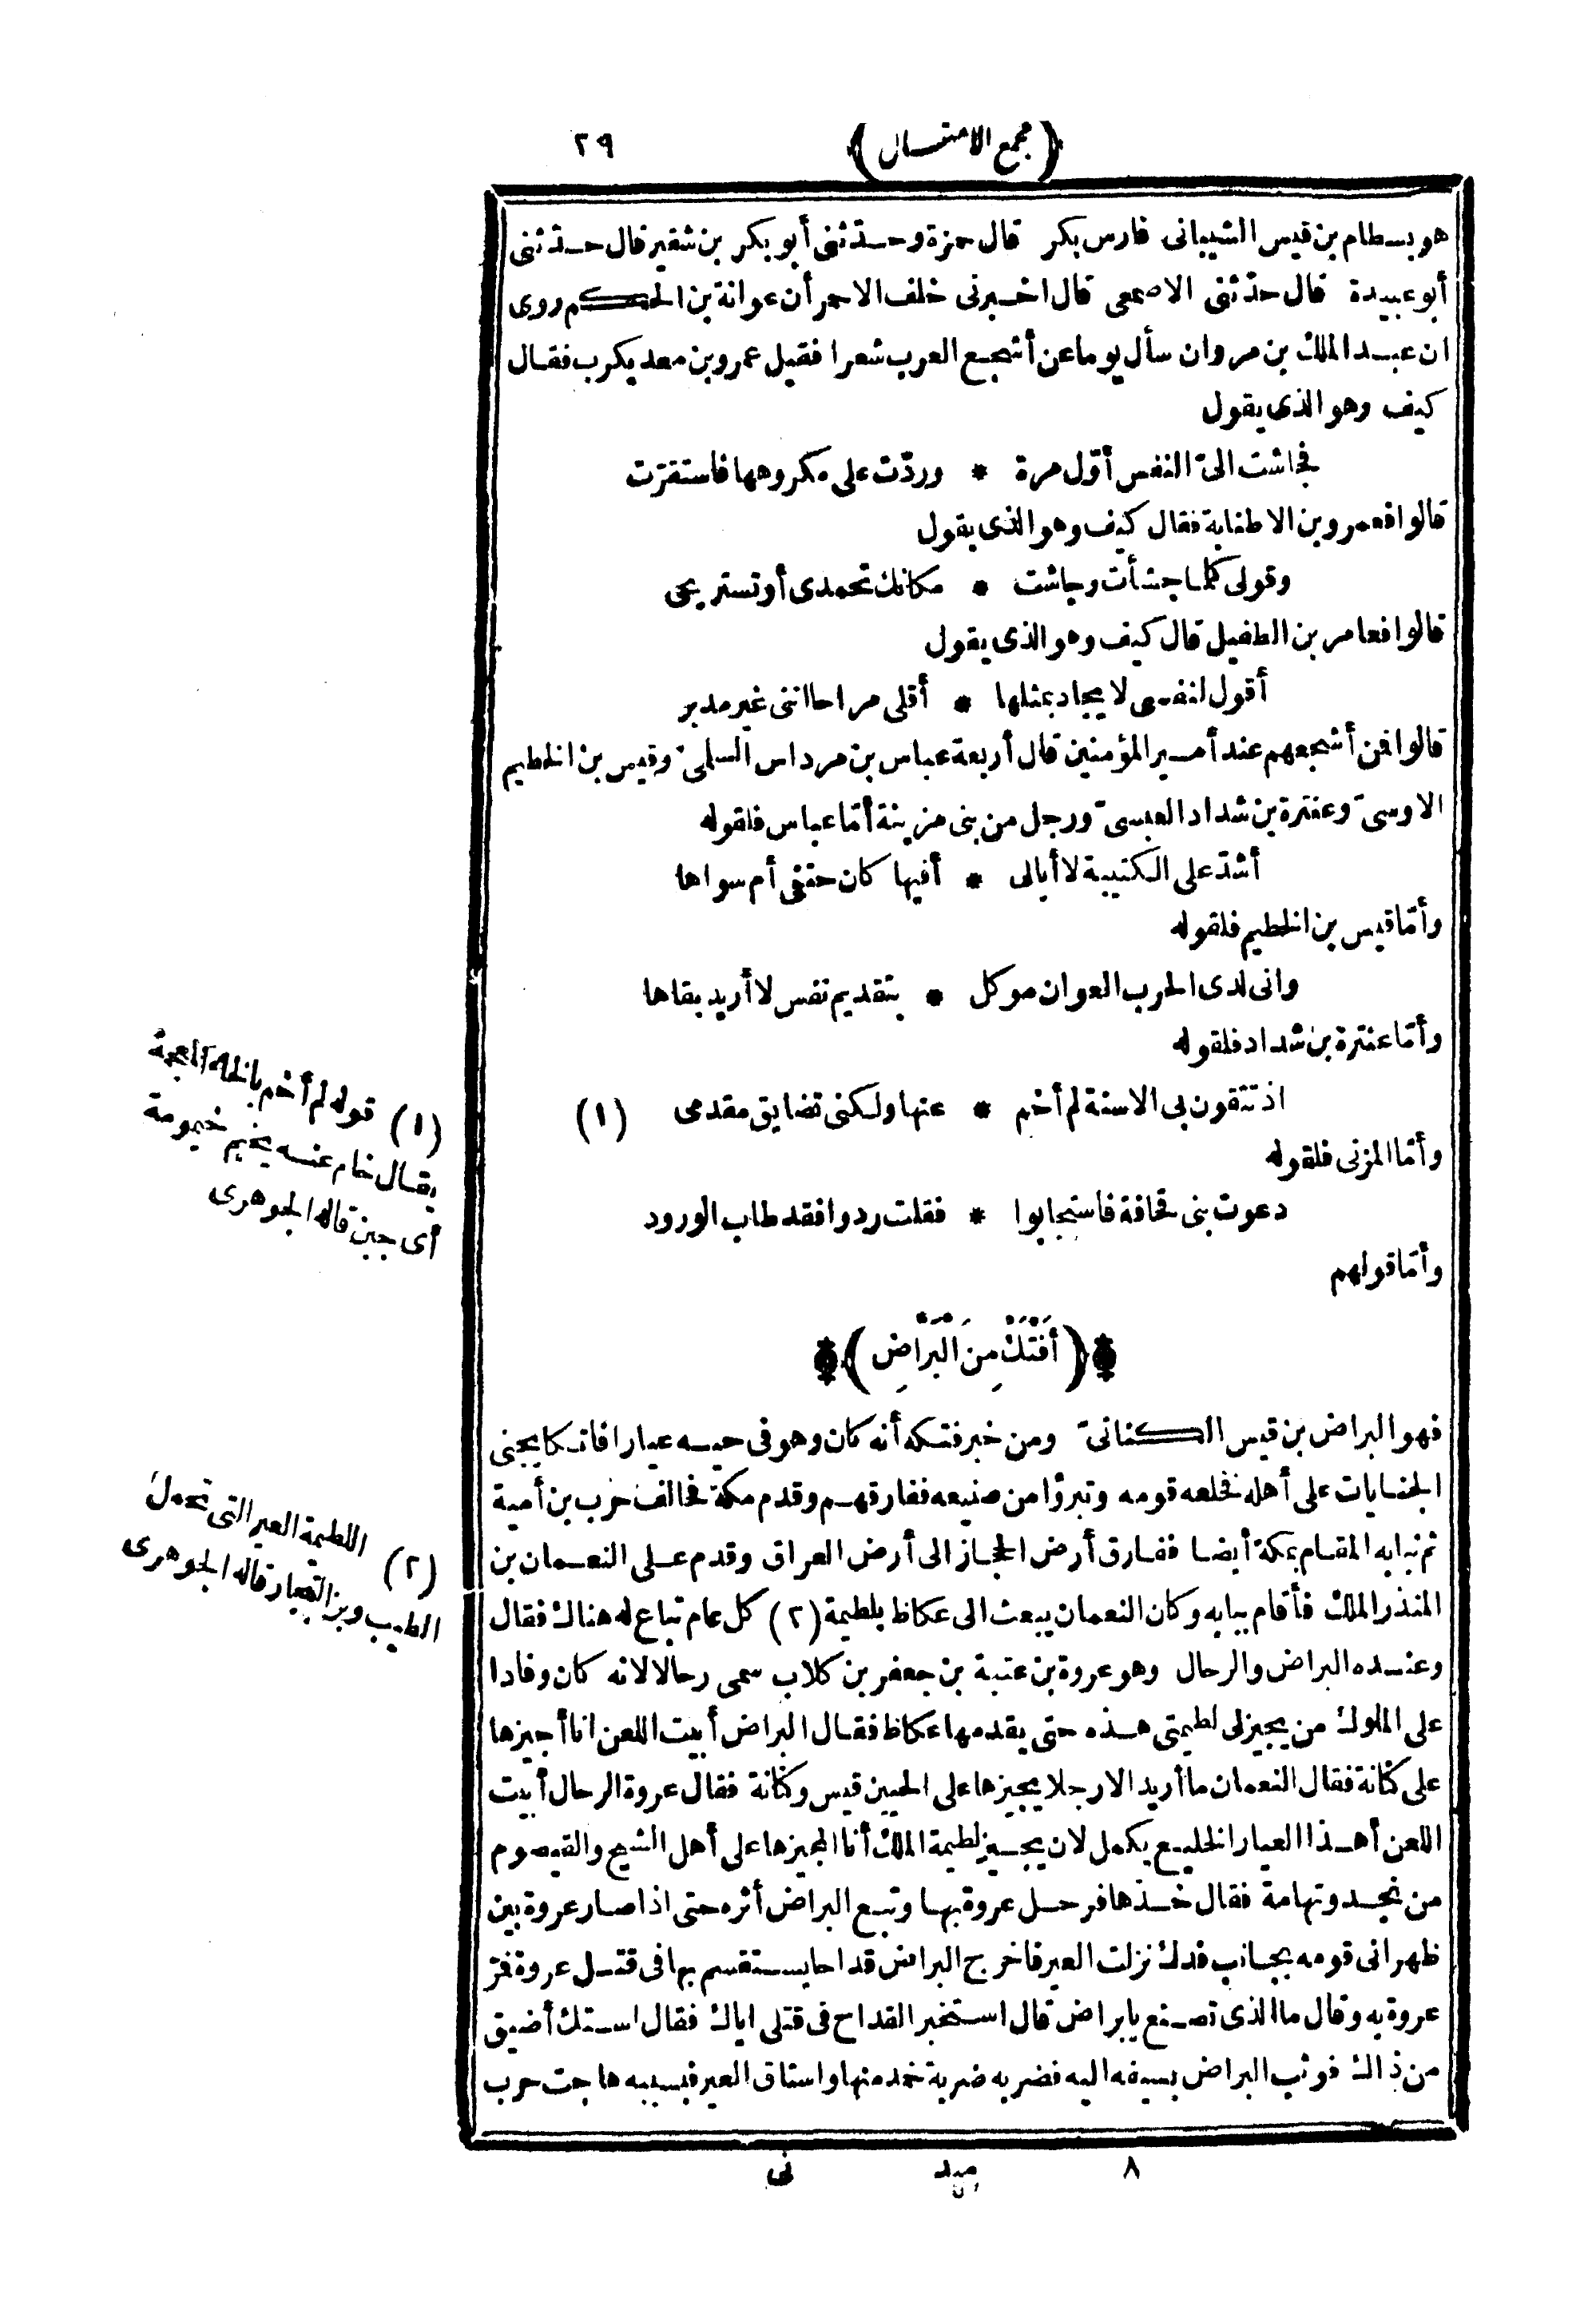 ﴿مجمع الامثال﴾ ٢٩
هو بسطام بن قيس الشيبانى فارس بكر قال حمزة وحدّثنى أبو بكر بن شقير قال حدّثنى
أبو عبيدة قال حدّثنى الاصمعى قال اخبرنى خلف الاحمر أن عوانة بن الحكم روى
ان عبد الملك بن مروان سأل يوما عن أشجع العرب شعرا فقيل عمرو بن معد يكرب فقال
كيف وهو الذى يقول
فجاشت الىّ النفس أوّل مرة * وردّت على مكروهها فاستقرّت
قالوا فعمرو بن الاطنابة فقال كيف وهو الذى يقول
وقولى كلما جشأت وجاشت * مكانك تحمدى أو تستريحى
قالوا فعامر بن الطفيل قال كيف وهو الذى يقول
أقول لنفسى لا يجاد بمثلها * أقلى مراحا اننى غير مدبر
قالوا فمن أشجعهم عند أمير المؤمنين قال أربعة عباس بن مرداس السلمىّ وقيس بن الخطيم
الاوسىّ وعنترة بن شداد العبسىّ ورجل من بنى مزينة أمّا عباس فلقوله
أشدّ على الكتيبة لا أبالى * أفيها كان حتفى أم سواها
وأمّا قيس بن الخطيم فلقوله
وانى لدى الحرب العوان موكل * بتقديم نفس لا أريد بقاها
وأمّا عنترة بن شداد فلقوله
اذ تتقون بى الاسنة لم أخم * عنها ولكنى تضايق مقدمى (١)
وأمّا المزنى فلقوله
دعوت بنى قحافة فاستجابوا * فقلت ردوا فقد طاب الورود
وأمّا قولهم
﴿أَفْتَكُ مِنَ الْبَرَّاضِ﴾
فهو البراض بن قيس الكنانىّ ومن خبر فتكه أنه كان وهو فى حيه عيارا فاتكا يجنى
الجنايات على أهله فخلعه قومه وتبرؤا من صنيعه ففارقهم وقدم مكة فحالف حرب بن أمية
ثم نبا به المقام بمكة أيضا ففارق أرض الحجاز الى أرض العراق وقدم على النعمان بن
المنذر الملك فأقام ببابه وكان النعمان يبعث الى عكاظ بلطيمة (٢) كل عام تباع له هناك فقال
وعنده البراض والرحال وهو عروة بن عتبة بن جعفر بن كلاب سمى رحالا لانه كان وفادا
على الملوك من يجيز لى لطيمتى هذه حتى يقدمها عكاظ فقال البراض أبيت اللعن انا أجيزها
على كنانة فقال النعمان ما أريد الا رجلا يجيزها على الحيين قيس وكنانة فقال عروة الرحال أبيت
اللعن أهذا العيار الخليع يكمل لان يجيز لطيمة الملك أنا المجيزها على أهل الشيح والقيصوم
من نجد وتهامة فقال خذها فرحل عروة بها وتبع البراض أثره حتى اذا صار عروة بين
ظهرانى قومه بجانب فدك نزلت العير فاخرج البراض قداحا يستقسم بها فى قتل عروة فمرّ
عروة به وقال ما الذى تصنع يا براض قال استخبر القداح فى قتلى اياك فقال استك أضيق
من ذاك فوثب البراض بسيفه اليه فضربه ضربة خمد منها واستاق العير فبسببه هاجت حرب
(١) قوله لم أخم بالخاء المعجمة
يقال خام عنه يخيم خيمومة
أى جبن قاله الجوهرى
(٢) اللطيمة العير التى تحمل
الطيب وبز التجار قاله الجوهرى
٨ ميد نى